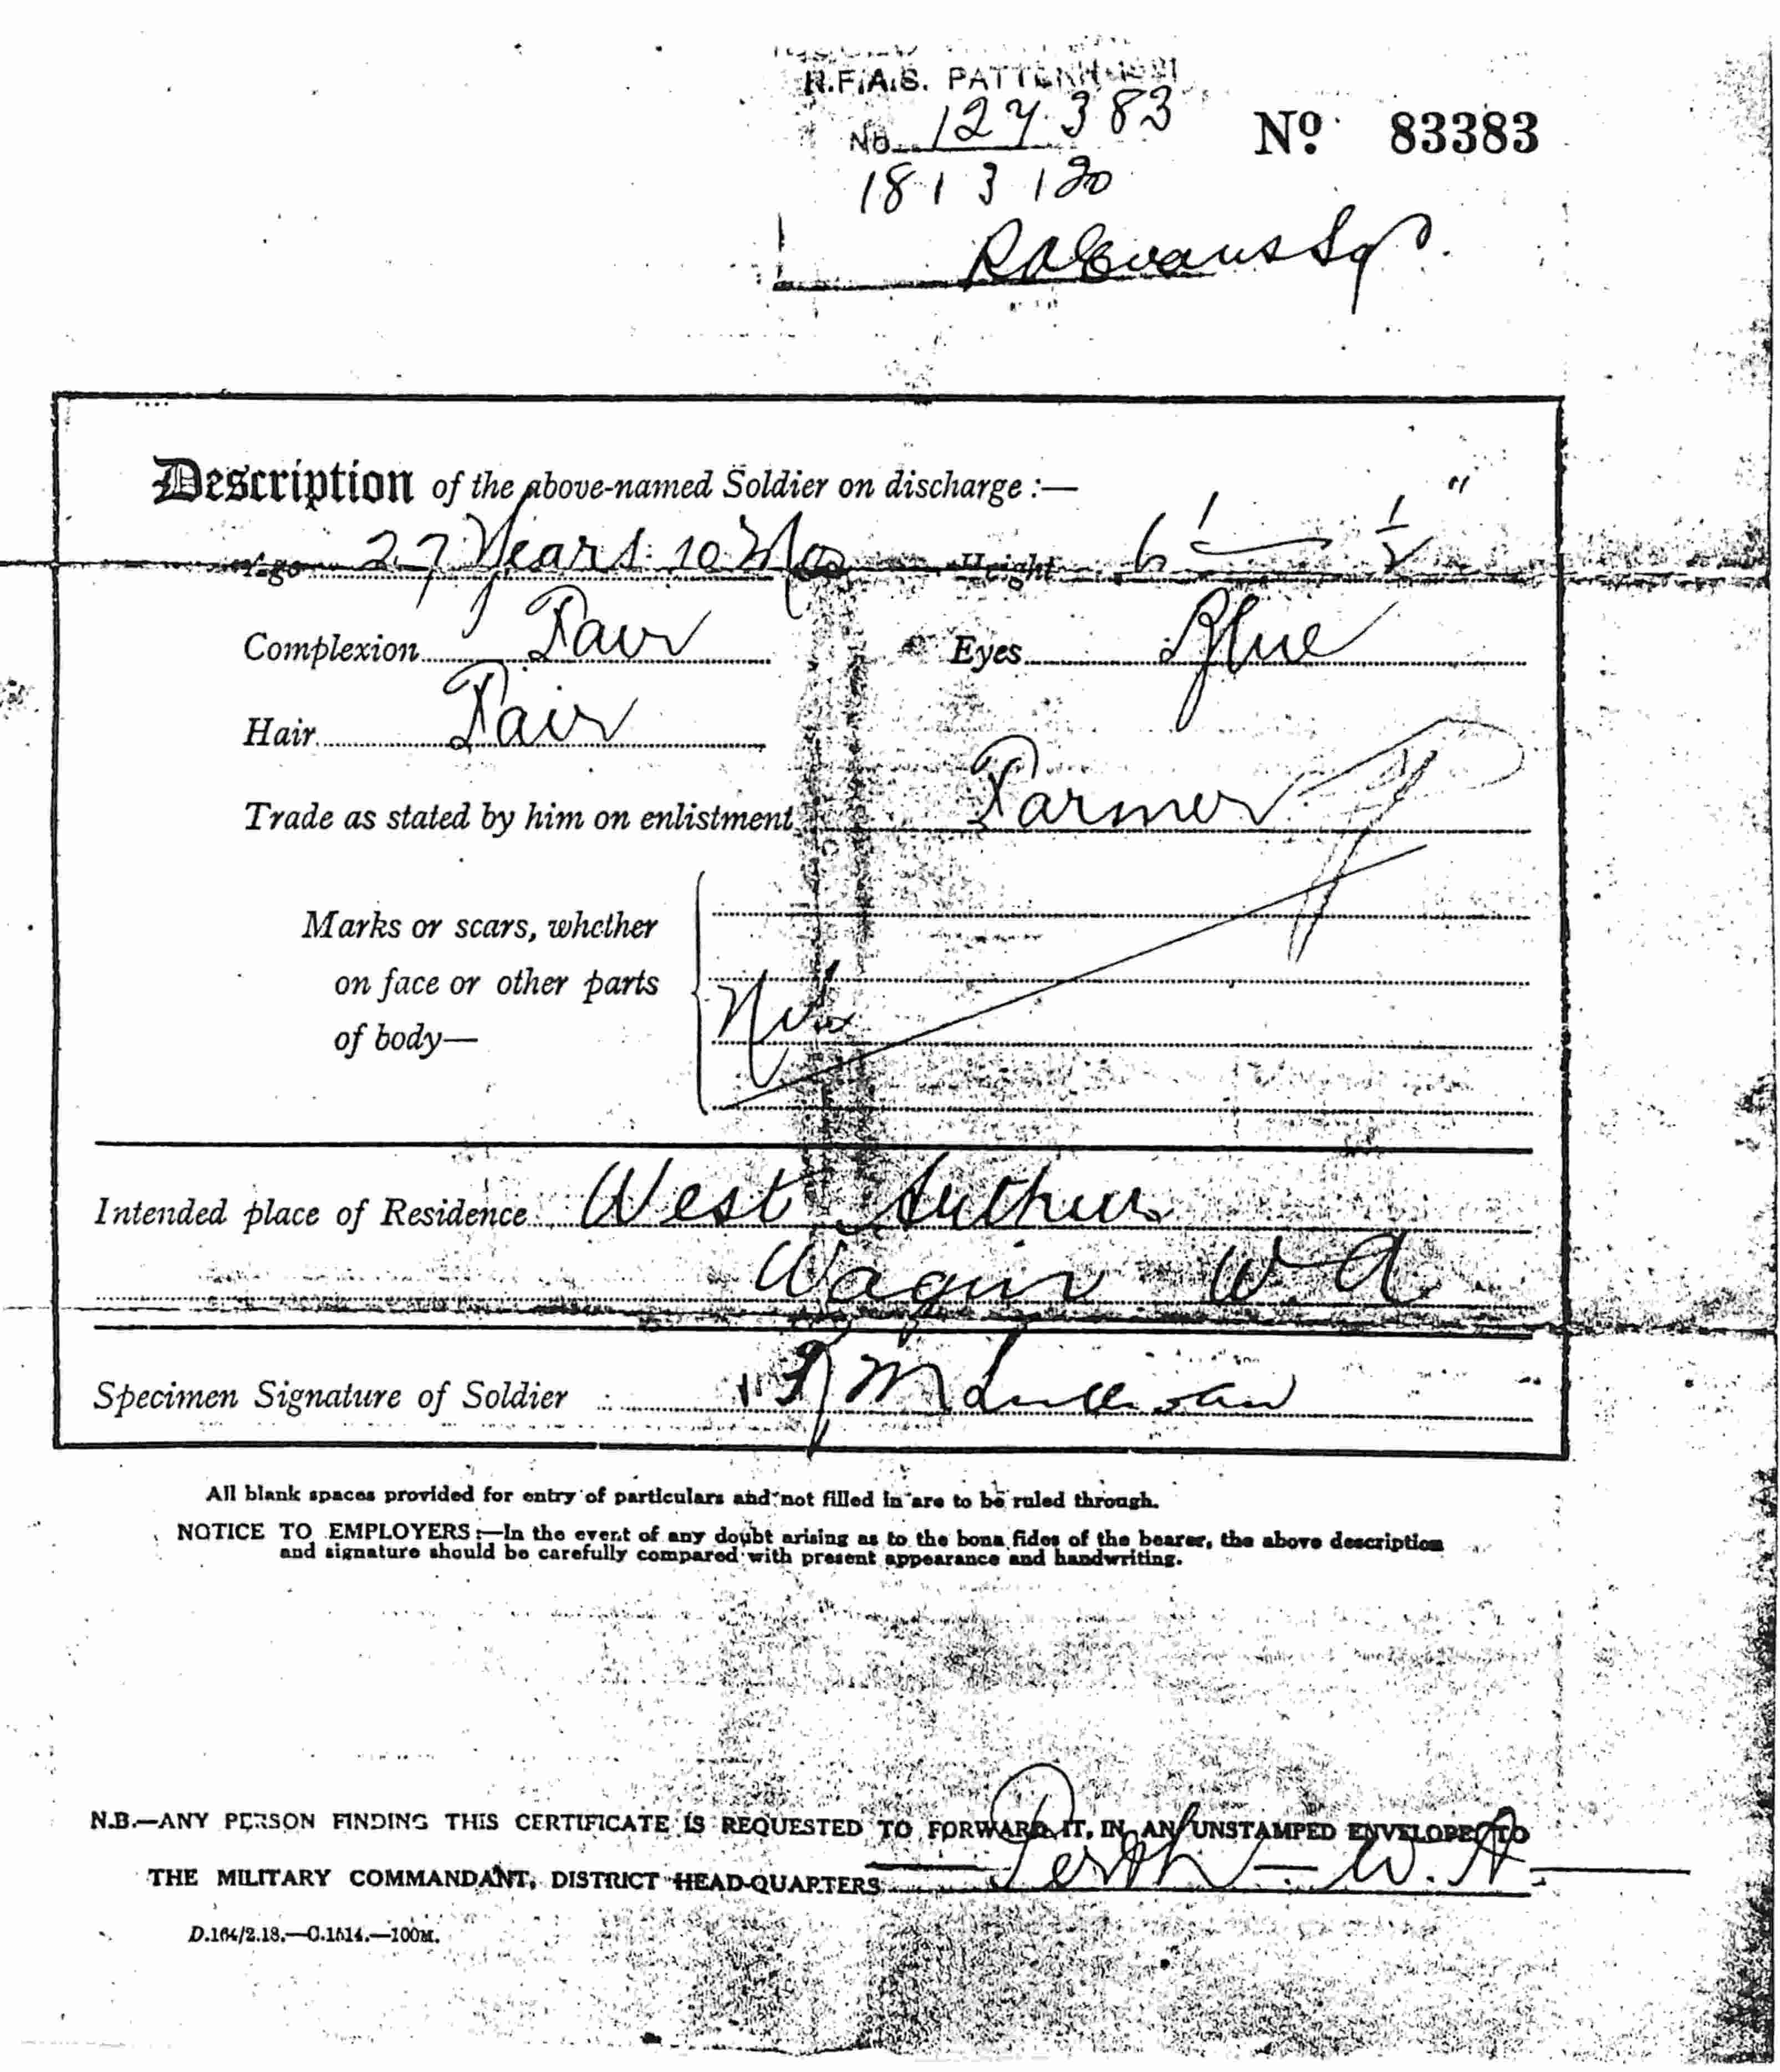 R.F.A.S. PATTERN
No. 127383 No. 83383
18 / 3 / 20
Evans Sgt
Description of the above-named Soldier on discharge :—
Age 27 Years 10 Mos Height 6' — ½"
Complexion Fair Eyes Blue
Hair Fair
Trade as stated by him on enlistment Farmer
Marks or scars, whether
on face or other parts
of body—
Nil
Intended place of Residence West Arthur
Wagin W.A.
Specimen Signature of Soldier M Sullivan
All blank spaces provided for entry of particulars and not filled in are to be ruled through.
NOTICE TO EMPLOYERS :—In the event of any doubt arising as to the bona fides of the bearer, the above description
and signature should be carefully compared with present appearance and handwriting.
N.B.—ANY PERSON FINDING THIS CERTIFICATE IS REQUESTED TO FORWARD IT, IN AN UNSTAMPED ENVELOPE, TO
THE MILITARY COMMANDANT, DISTRICT HEAD-QUARTERS Perth — W.A.
D.164/2.18.—C.1514.—100M.